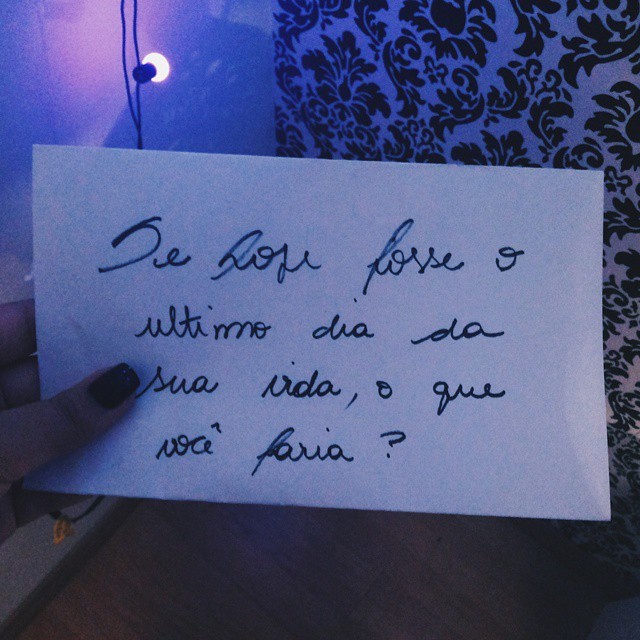 Se hoje fosse o
ultimo dia da
sua vida, o que
você faria?